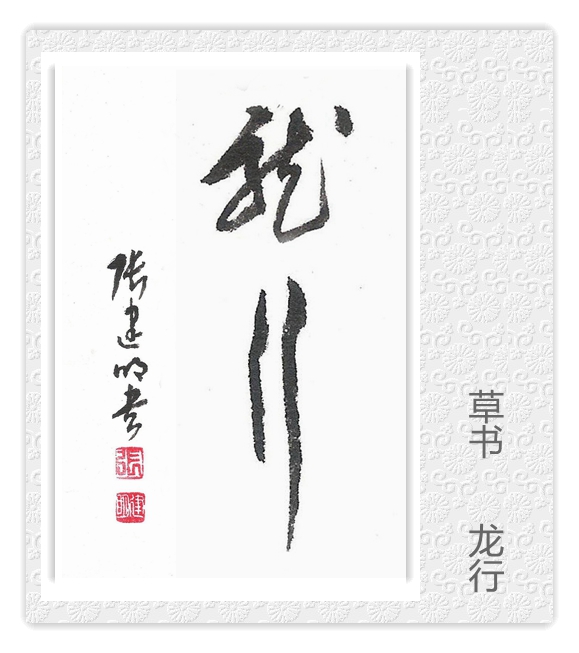 龙行
张建明书
张
建明
草书 龙行